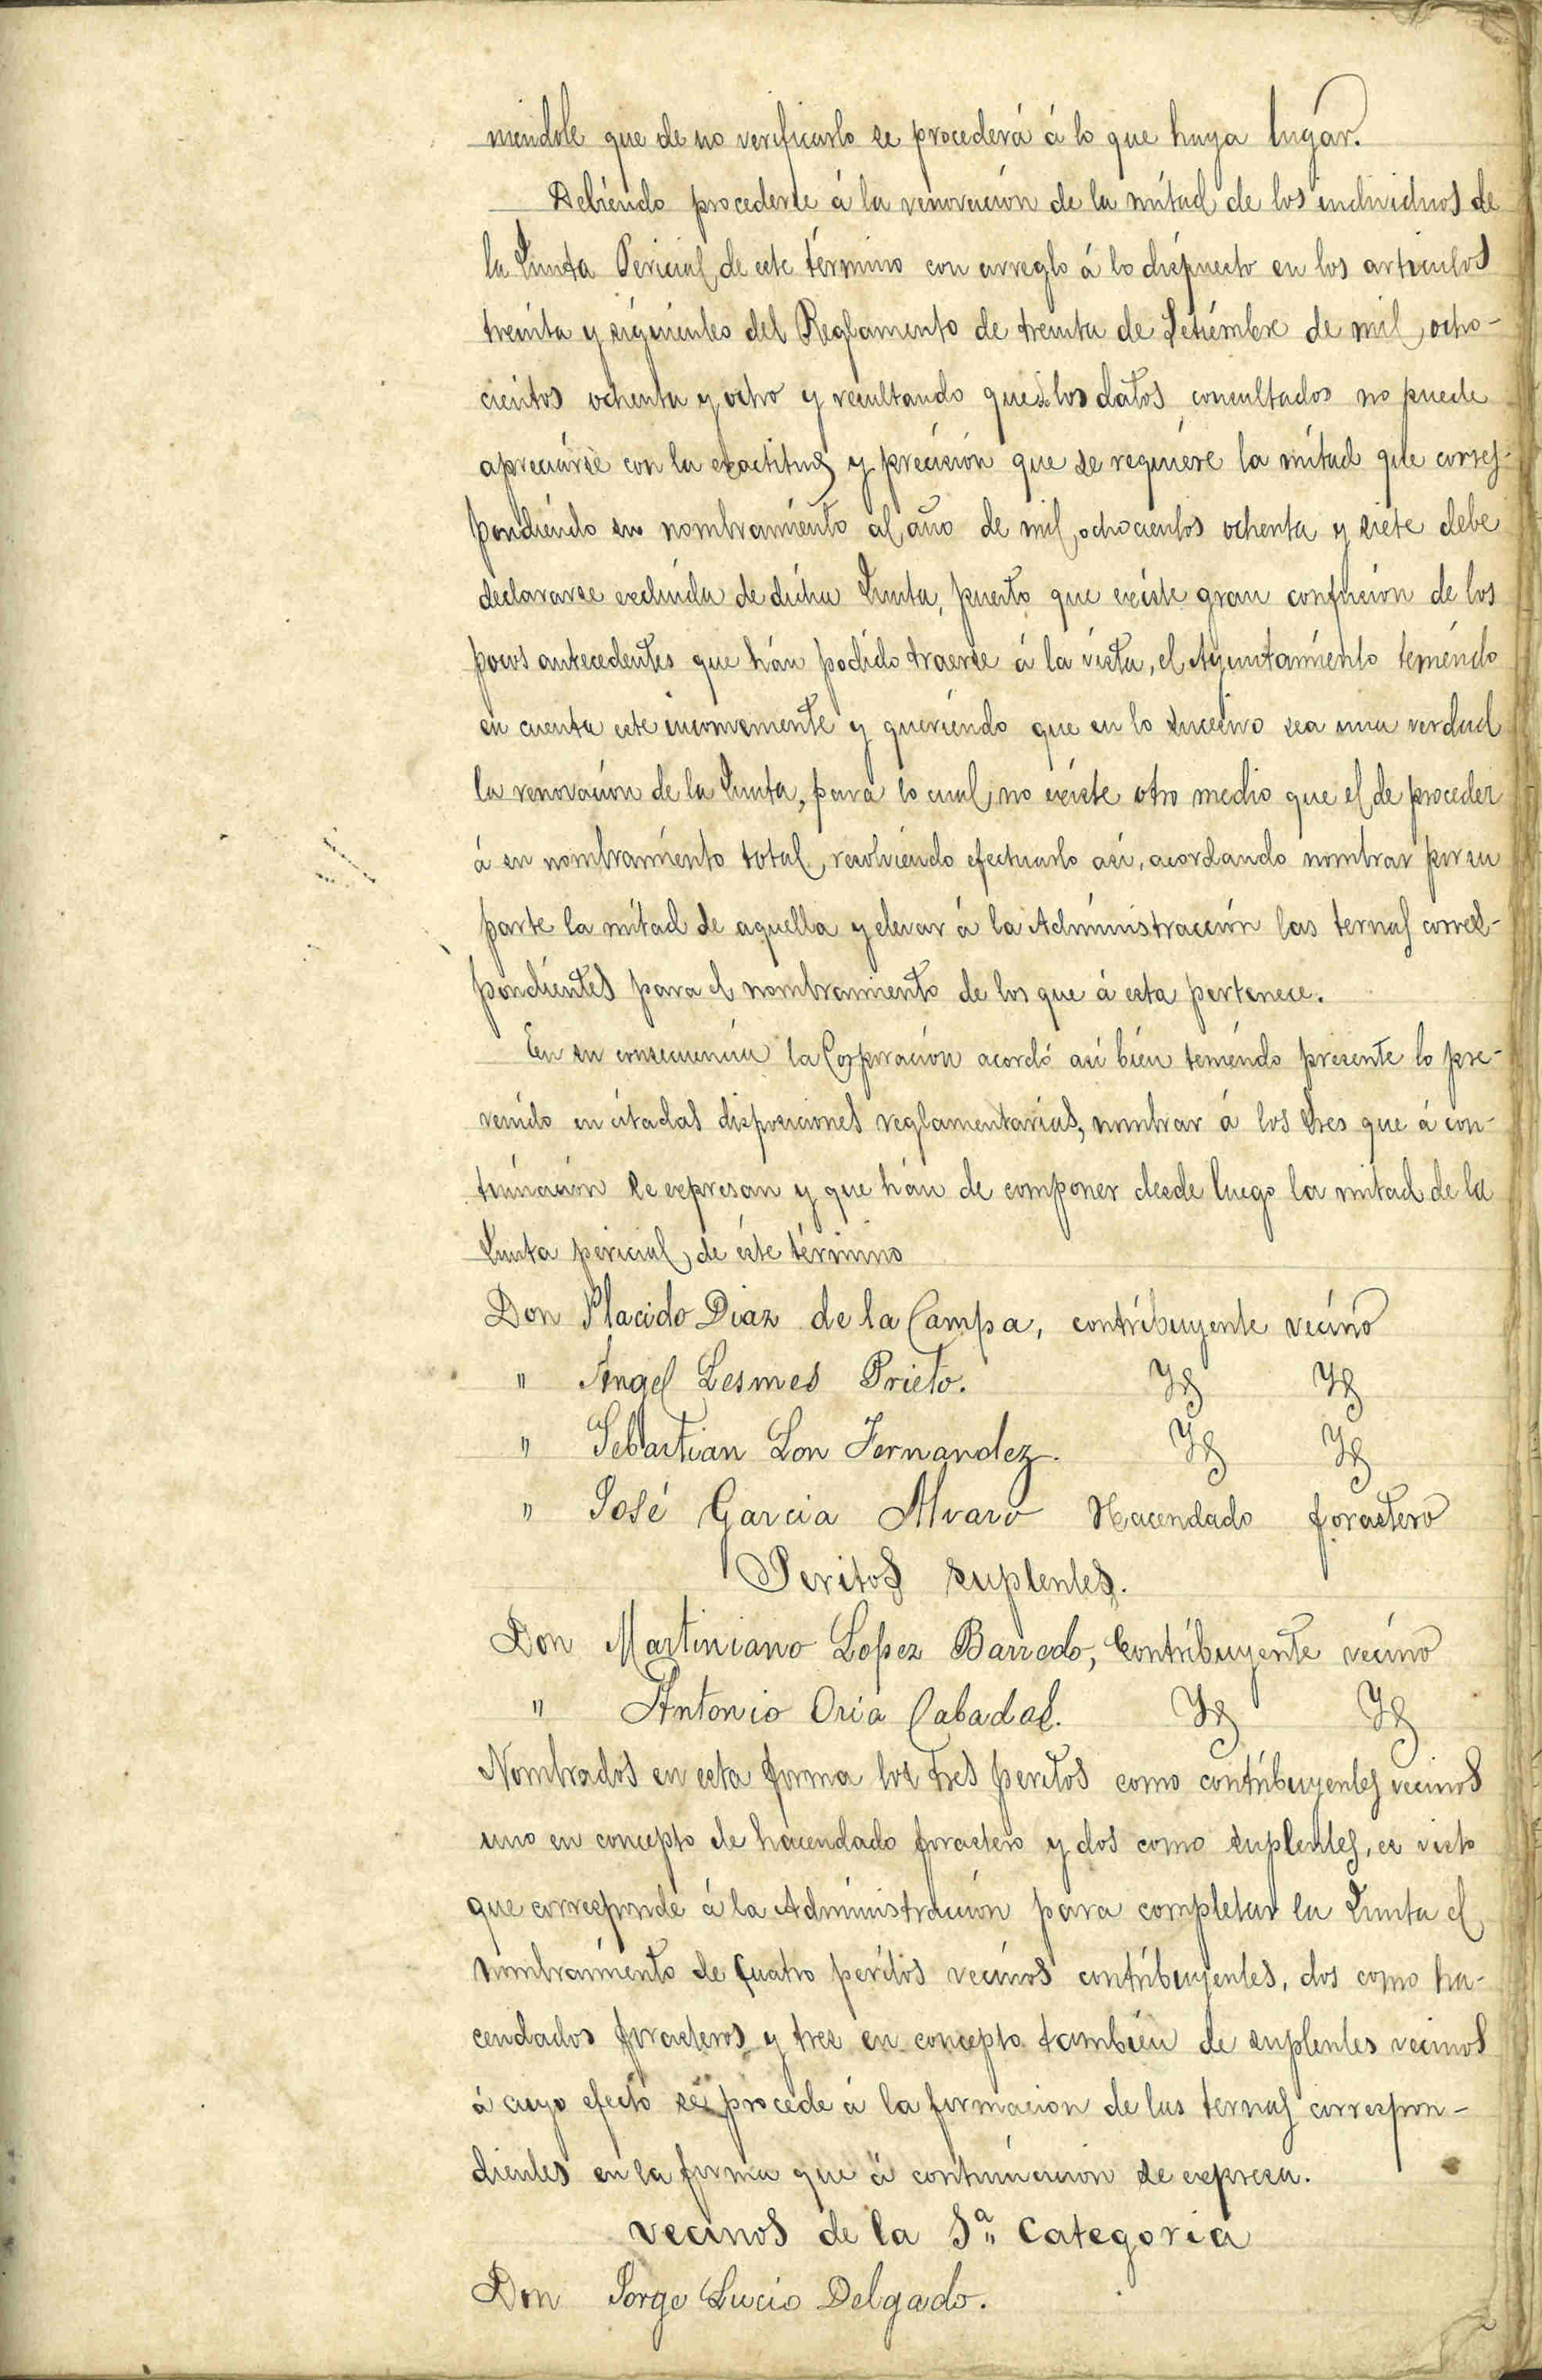 niendole que de no verificarlo se procederá á lo que haya lugar.
Debiendo procederse á la renovación de la mitad de los individuos de
la Junta Pericial de este término con arreglo á lo dispuesto en los articulos
treinta y siguientes del Reglamento de treinta de Setiembre de mil ocho-
cientos ochenta y ocho y resultando que de los datos consultados no puede
apreciarse con la exactitud y precisión que se requiere la mitad que corres-
pondiendo su nombramiento al año de mil ochocientos ochenta y siete debe
declararse excluida de dicha Junta, puesto que existe gran confusión de los
pocos antecedentes que hán podido traerse á la vista, el Ayuntamiento teniendo
en cuenta este inconveniente y queriendo que en lo sucesivo sea una verdad
la renovación de la Junta, para lo cual no existe otro medio que el de proceder
á su nombramiento total, resolviendo efectuarlo asi, acordando nombrar por su
parte la mitad de aquella y elevar á la Administracción las ternas corres-
pondientes para el nombramiento de los que á esta pertenece.
En su consecuencia la Corporación acordó asi bién teniendo presente lo pre-
venido en citadas disposiciones reglamentarias, nombrar á los tres que á con-
tinuación se expresan y que hán de componer desde luego la mitad de la
Junta pericial de éste término
Don Placido Diaz de la Campa, contribuyente vecino
" Angel Lesmes Prieto. Yd Yd
" Sebastian Lon Fernandez. Yd Yd
" José Garcia Alvaro Hacendado forastero
Peritos suplentes.
Don Martiniano Lopez Barredo, Contribuyente vecino
" Antonio Oria Cabadas. Yd Yd
Nombrados en esta forma los tres peritos como contribuyentes vecinos
uno en concepto de hacendado forastero y dos como suplentes, es visto
que corresponde á la Administración para completar la Junta el
nombramiento de cuatro peritos vecinos contribuyentes, dos como ha-
cendados forasteros y tres en concepto también de suplentes vecinos
á cuyo efecto se procede á la formacion de las ternas correspon-
dientes en la forma que á continuación se expresa.
Vecinos de la 1ª Categoria
Don Jorge Lucio Delgado.